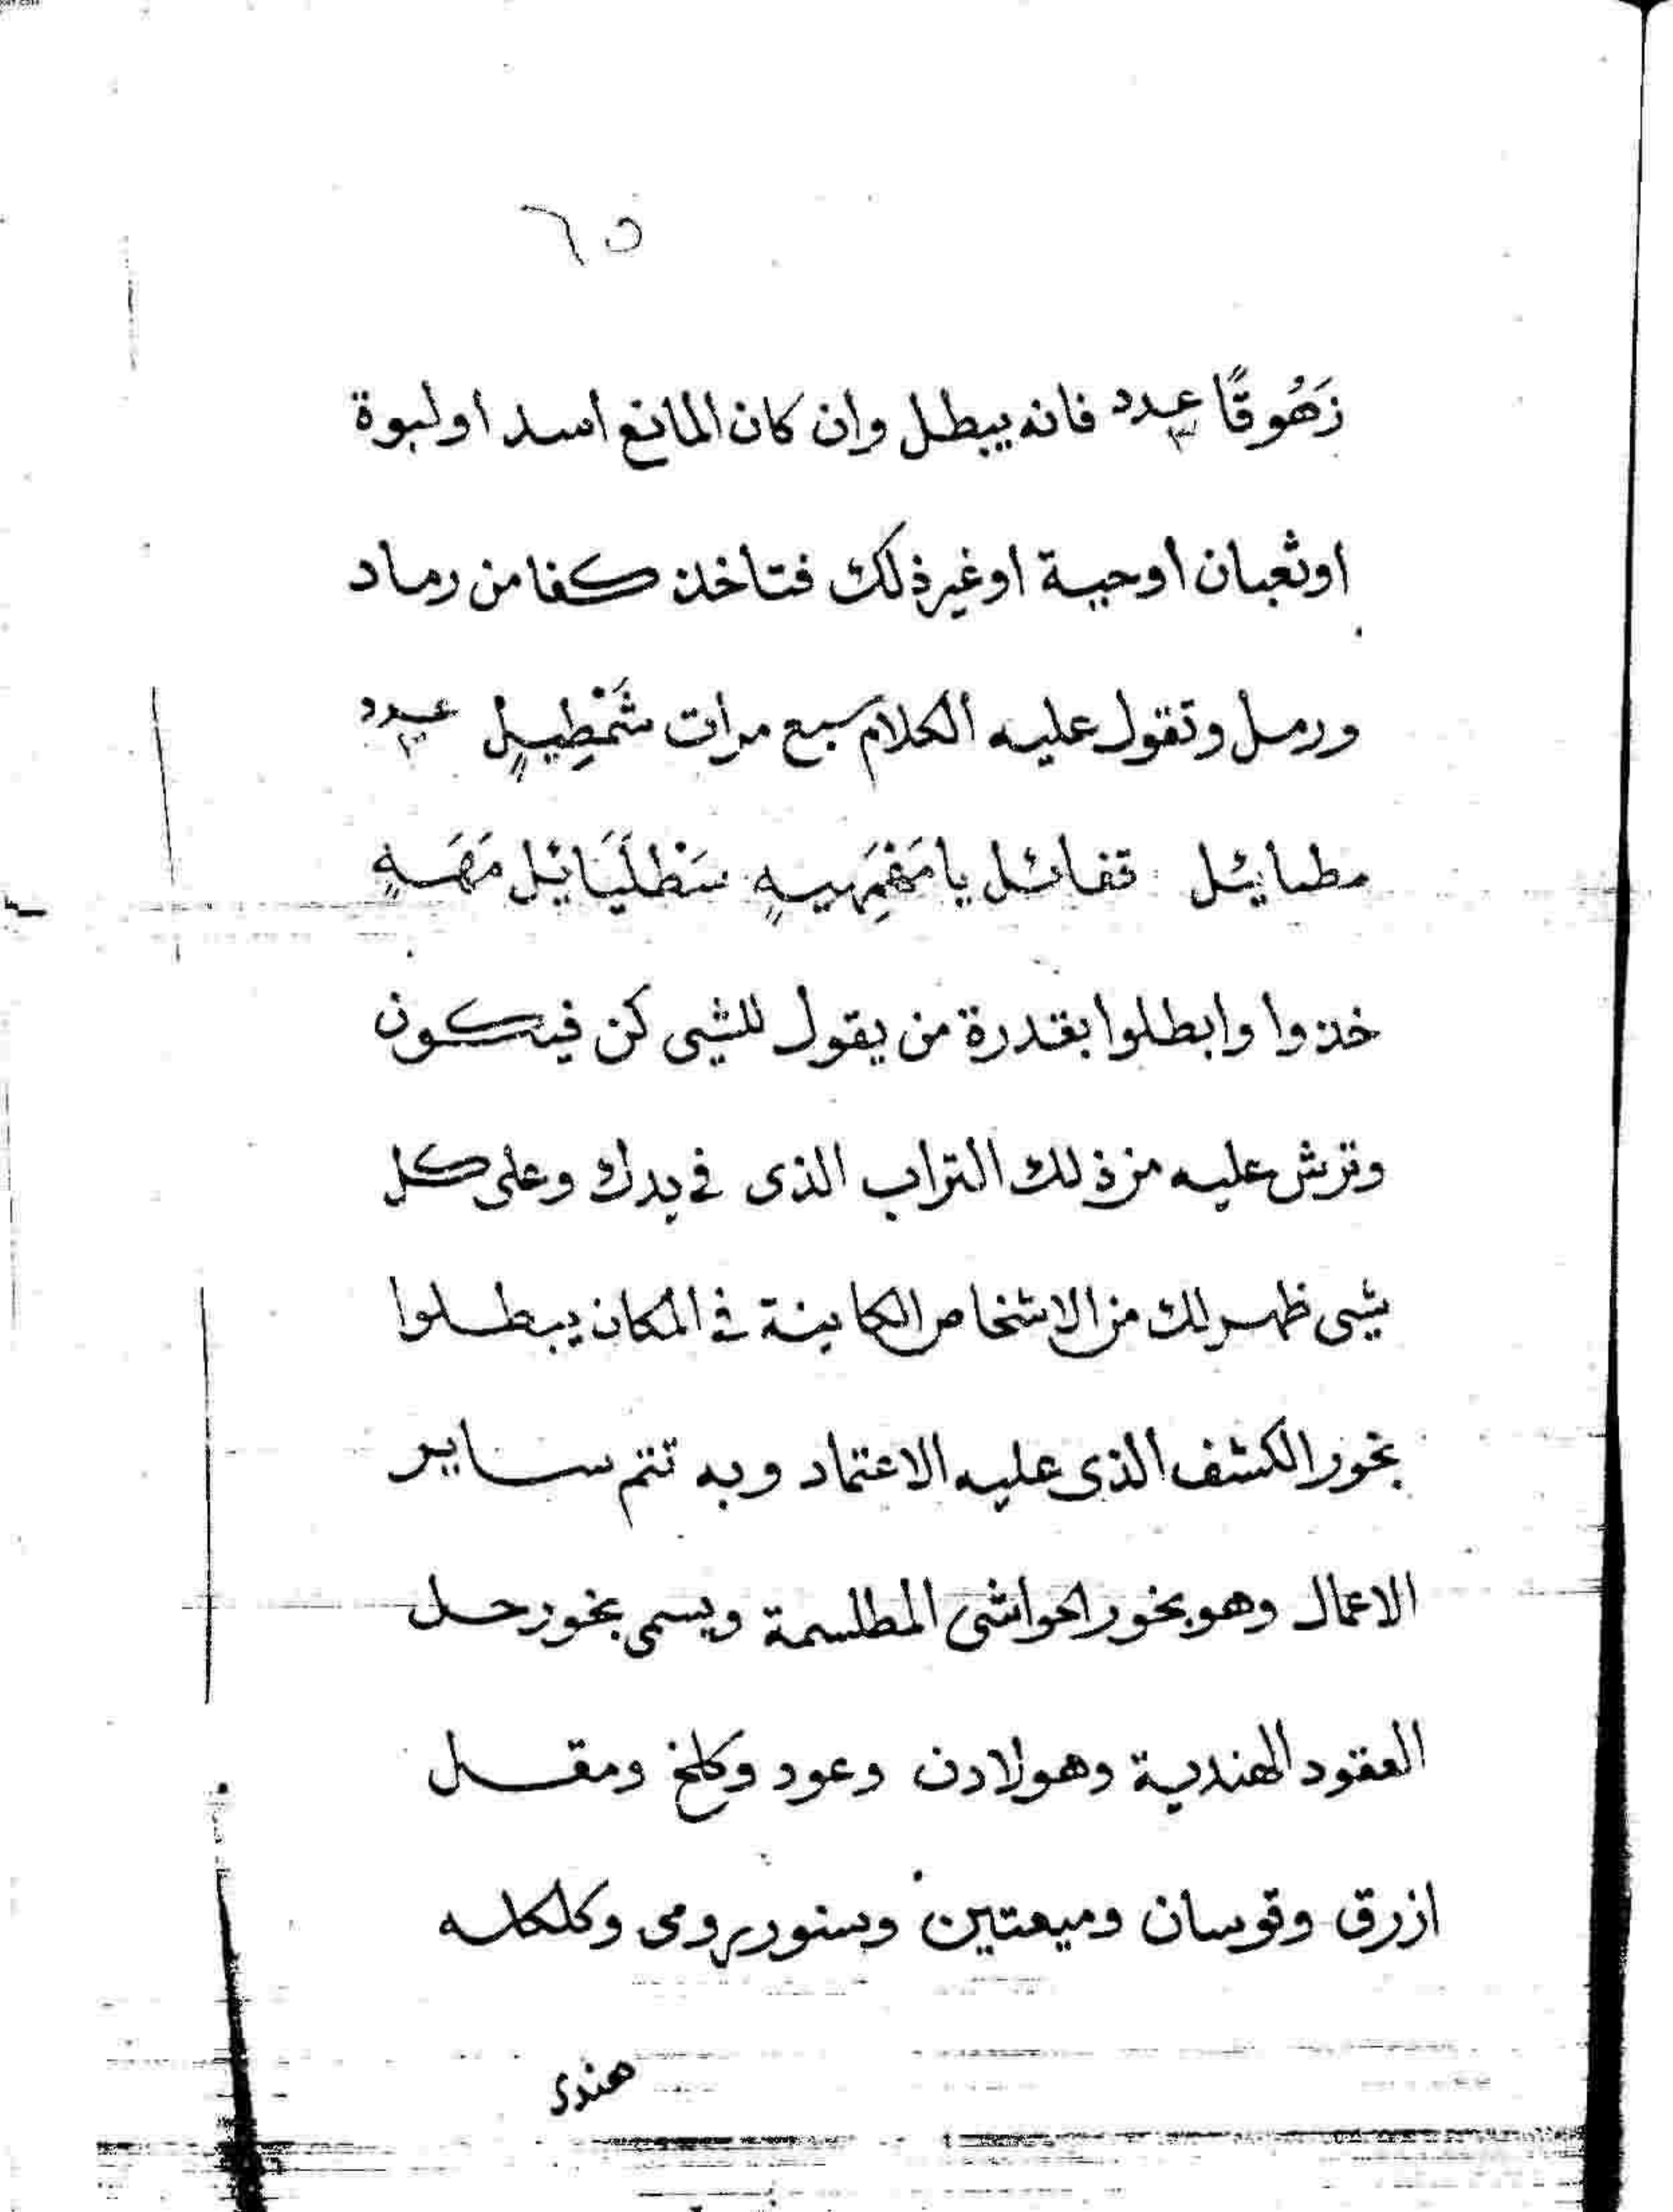 ٦٥
زَهُوقًا عدد ٣ فانه يبطل وان كان المانع اسد او لبوة
او ثعبان او حية او غير ذلك فتاخذ كفا من رماد
ورمل وتقول عليه الكلام سبع مرات شَمْطِيلٍ عدد ٣
مطيائل قفائل يا سَنْطَلَيَائيل مَهَهٍ
خذوا وابطلوا بقدرة من يقول للشيى كن فيكون
وترش عليه من ذلك التراب الذى فى يدك وعلى كل
شيى ظهر لك من الاشخاص الكاينة فى المكان يبطلوا
بخور الكشف الذى عليه الاعتماد وبه تتم ساير
الاعمال وهو بخور الحواشى المطلسمة ويسمى بخور حل
العقود الهندية وهو لادن وعود وكلخ ومقل
ازرق وقوسان وميعتين وسنور رومى وكلكله
هندى